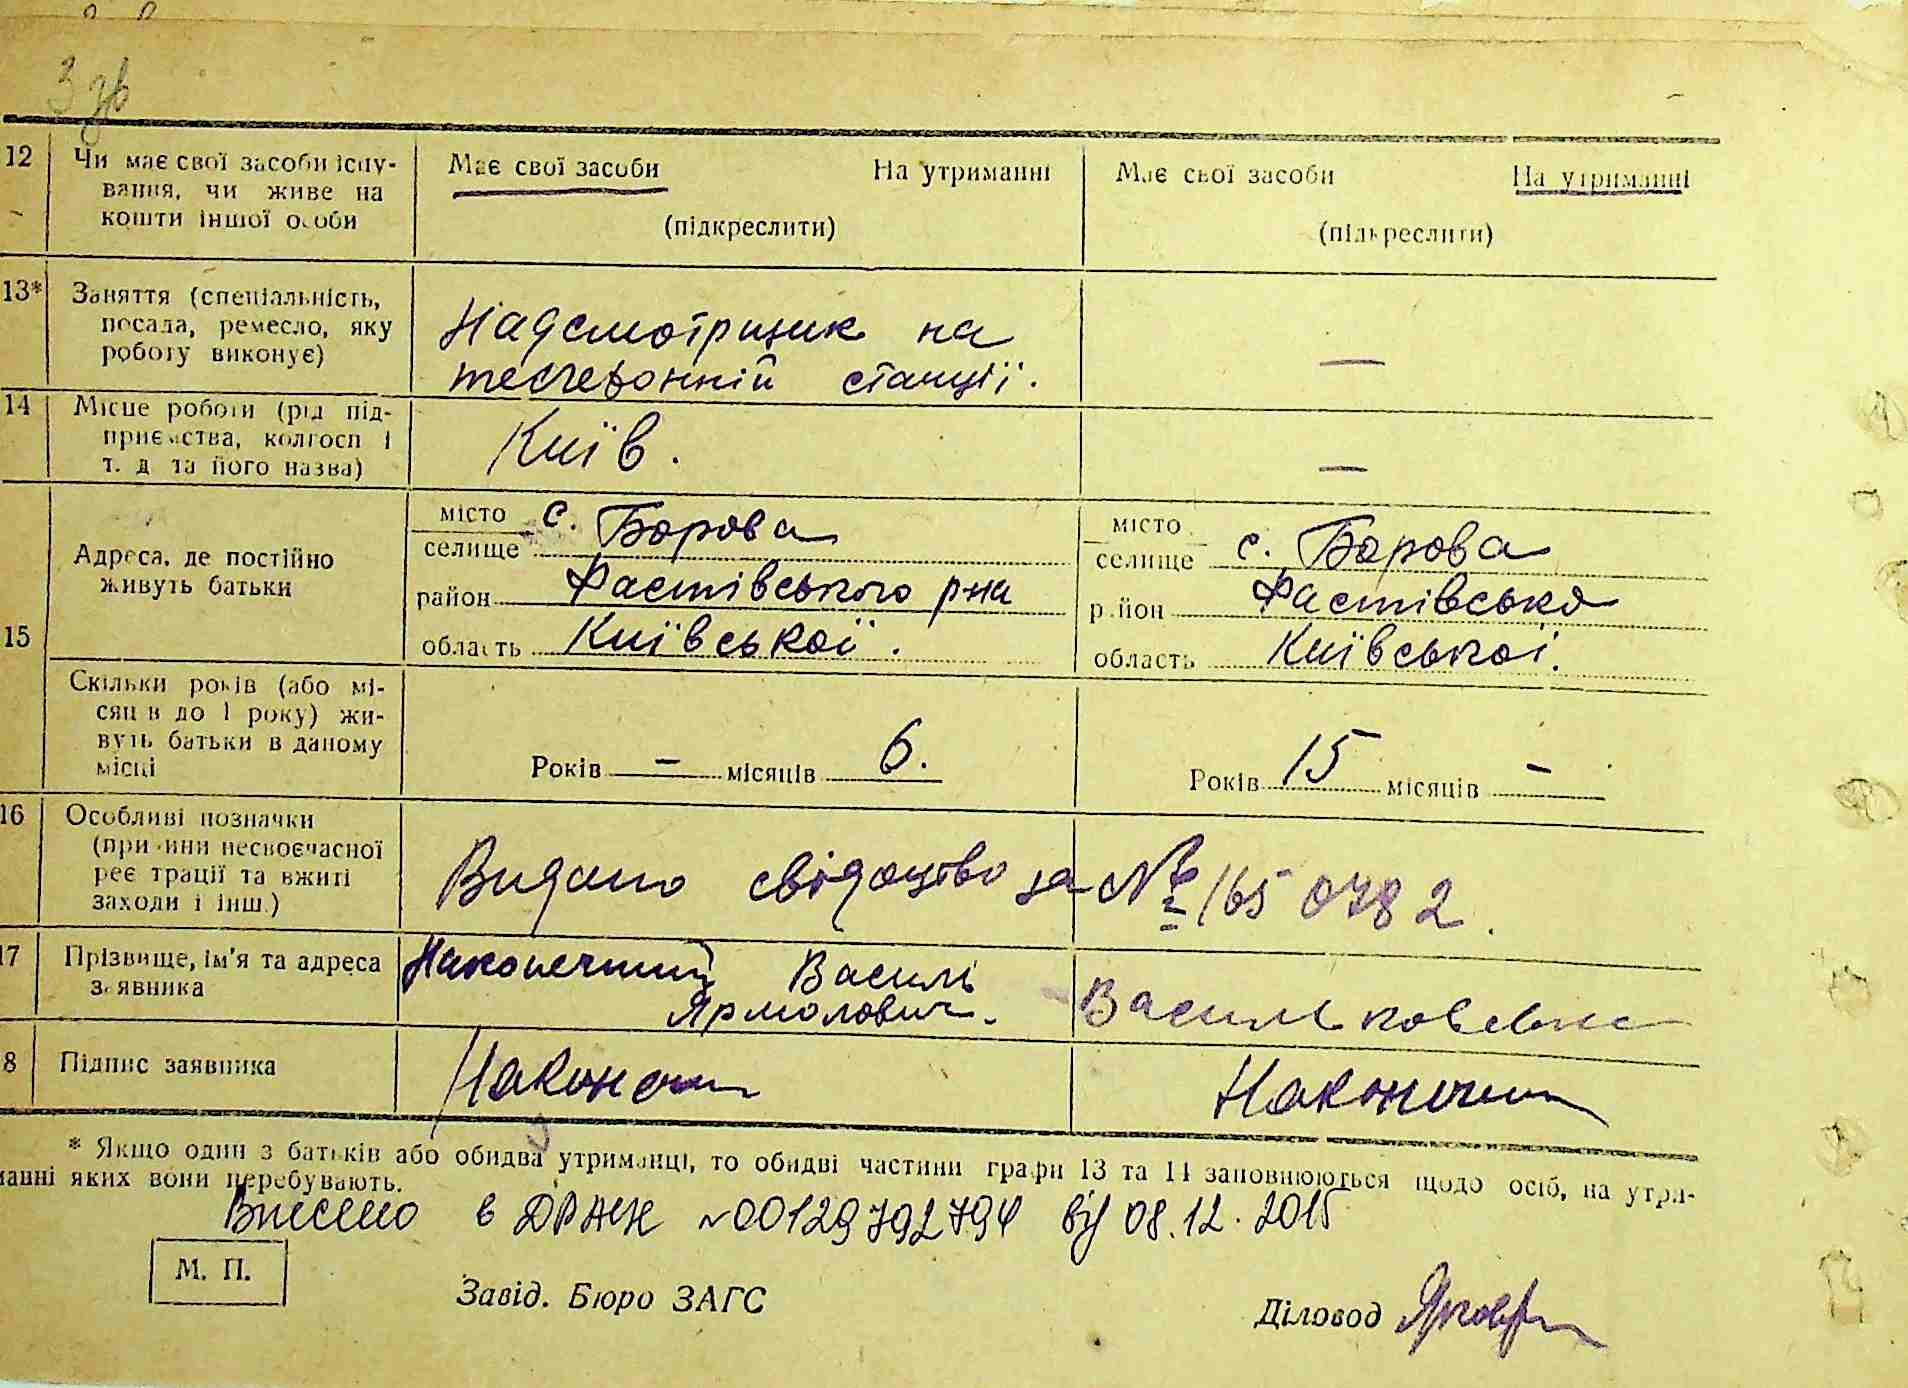 3 зв
12 Чи має свої засоби існу- Має свої засоби На утриманні Має свої засоби На утриманні
вання, чи живе на
кошти іншої особи (підкреслити) (підкреслити)
13* Заняття (спеціальність, Надсмотрщик на —
посада, ремесло, яку
роботу виконує) телефонній станції.
14 Місце роботи (рід під- Київ. —
приємства, колгосп і
т. д. та його назва)
місто с. Борова місто с. Борова
Адреса, де постійно селище селище
живуть батьки район Фастівського р-на район Фастівсько
15 область Київської. область Київської.
Скільки років (або мі-
сяців до 1 року) жи-
вуть батьки в даному Років — місяців 6. Років 15 місяців —
місці
16 Особливі позначки
(причини несвоєчасної
реєстрації та вжиті Видано свідоцтво за № 1650782.
заходи і інш.)
17 Прізвище, ім'я та адреса Наконечний Василь
заявника Ярмолович. Васильковська
8 Підпис заявника
* Якщо один з батьків або обидва утриманці, то обидві частини графи 13 та 14 заповнюються щодо осіб, на утри-
манні яких вони перебувають.
Внесено в ДРАЦС № 00129792794 від 08.12.2015
М. П.
Завід. Бюро ЗАГС Діловод